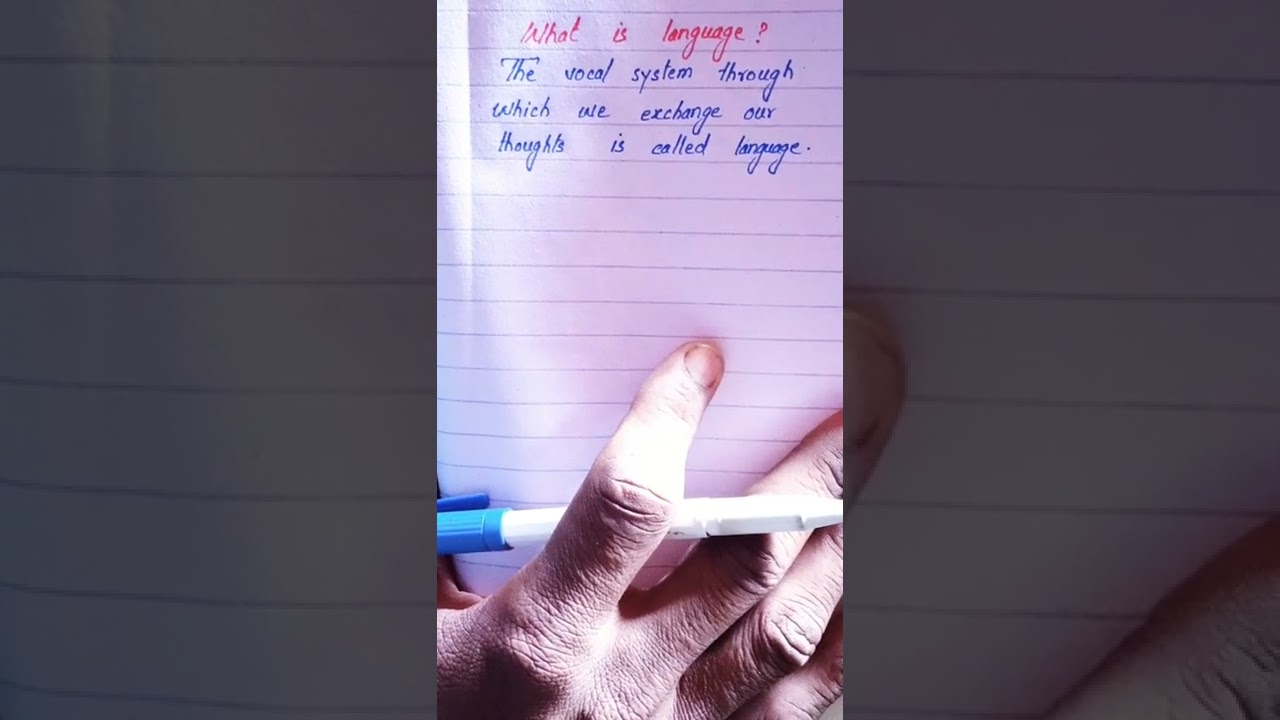 What is language?
The vocal system through
which we exchange our
thoughts is called language.